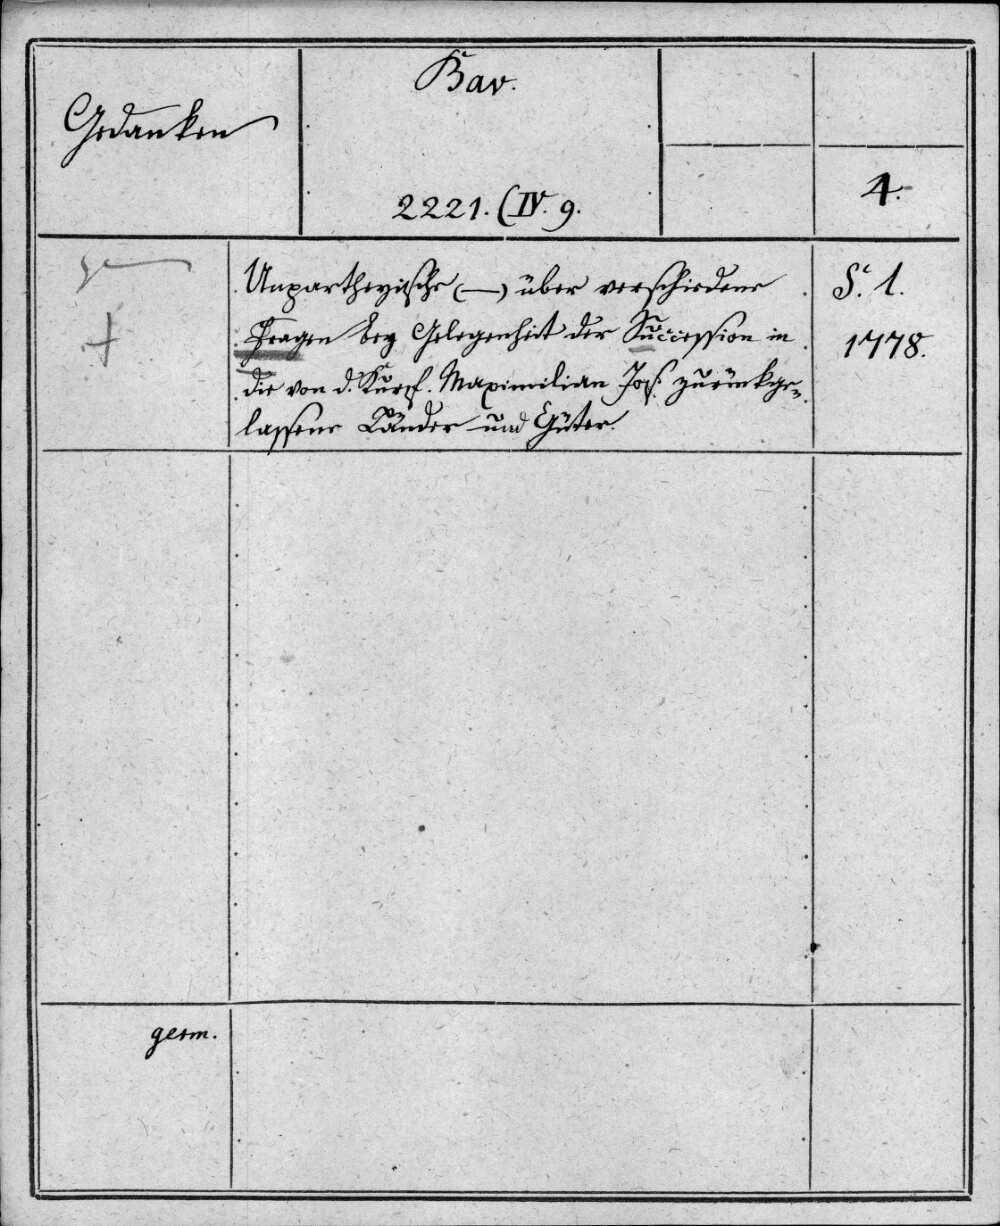 Gedanken
Bav.
2221. (IV. 9.
4.
Unpartheyische (—) über verschiedene
Fragen bey Gelegenheit der Succession in
die von d. Kurf. Maximilian Jos. zurückge-
lassene Länder und Güter.
S. l.
1778.
germ.